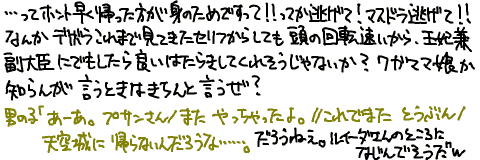 …ってホント早く帰った方が身のためですって!!ってか逃げて!マスドラ逃げて!!
なんかデボラこれまで見てきたセリフからしても頭の回転速いから、王妃兼
副大臣にでもしたら良いはたらきしてくれそうじゃないか?ワガママ娘か
知らんが言うときはきちんと言うぜ?
男の子「あーあ。プサンさん/また やっちゃったよ。//これでまた とうぶん/
天空城に 帰らないんだろうな……。 だろうねぇ。ルイーダさんのところに
なじんでいそうだw